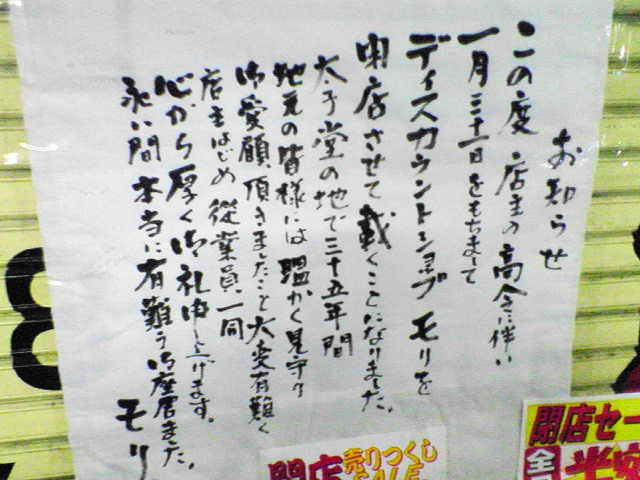 お知らせ
この度 店主の高令に伴い
一月三十一日をもちまして
ディスカウントショップ モリを
閉店させて戴くことになりました。
太子堂の地で三十五年間
地元の皆様には温かく見守り
御愛顧頂きましたこと大変有難く
店主はじめ従業員一同
心から厚く御礼申し上げます。
永い間 本当に有難う御座居ました。
モリ
8
閉店
売りつくし
SALE
閉店セー
全